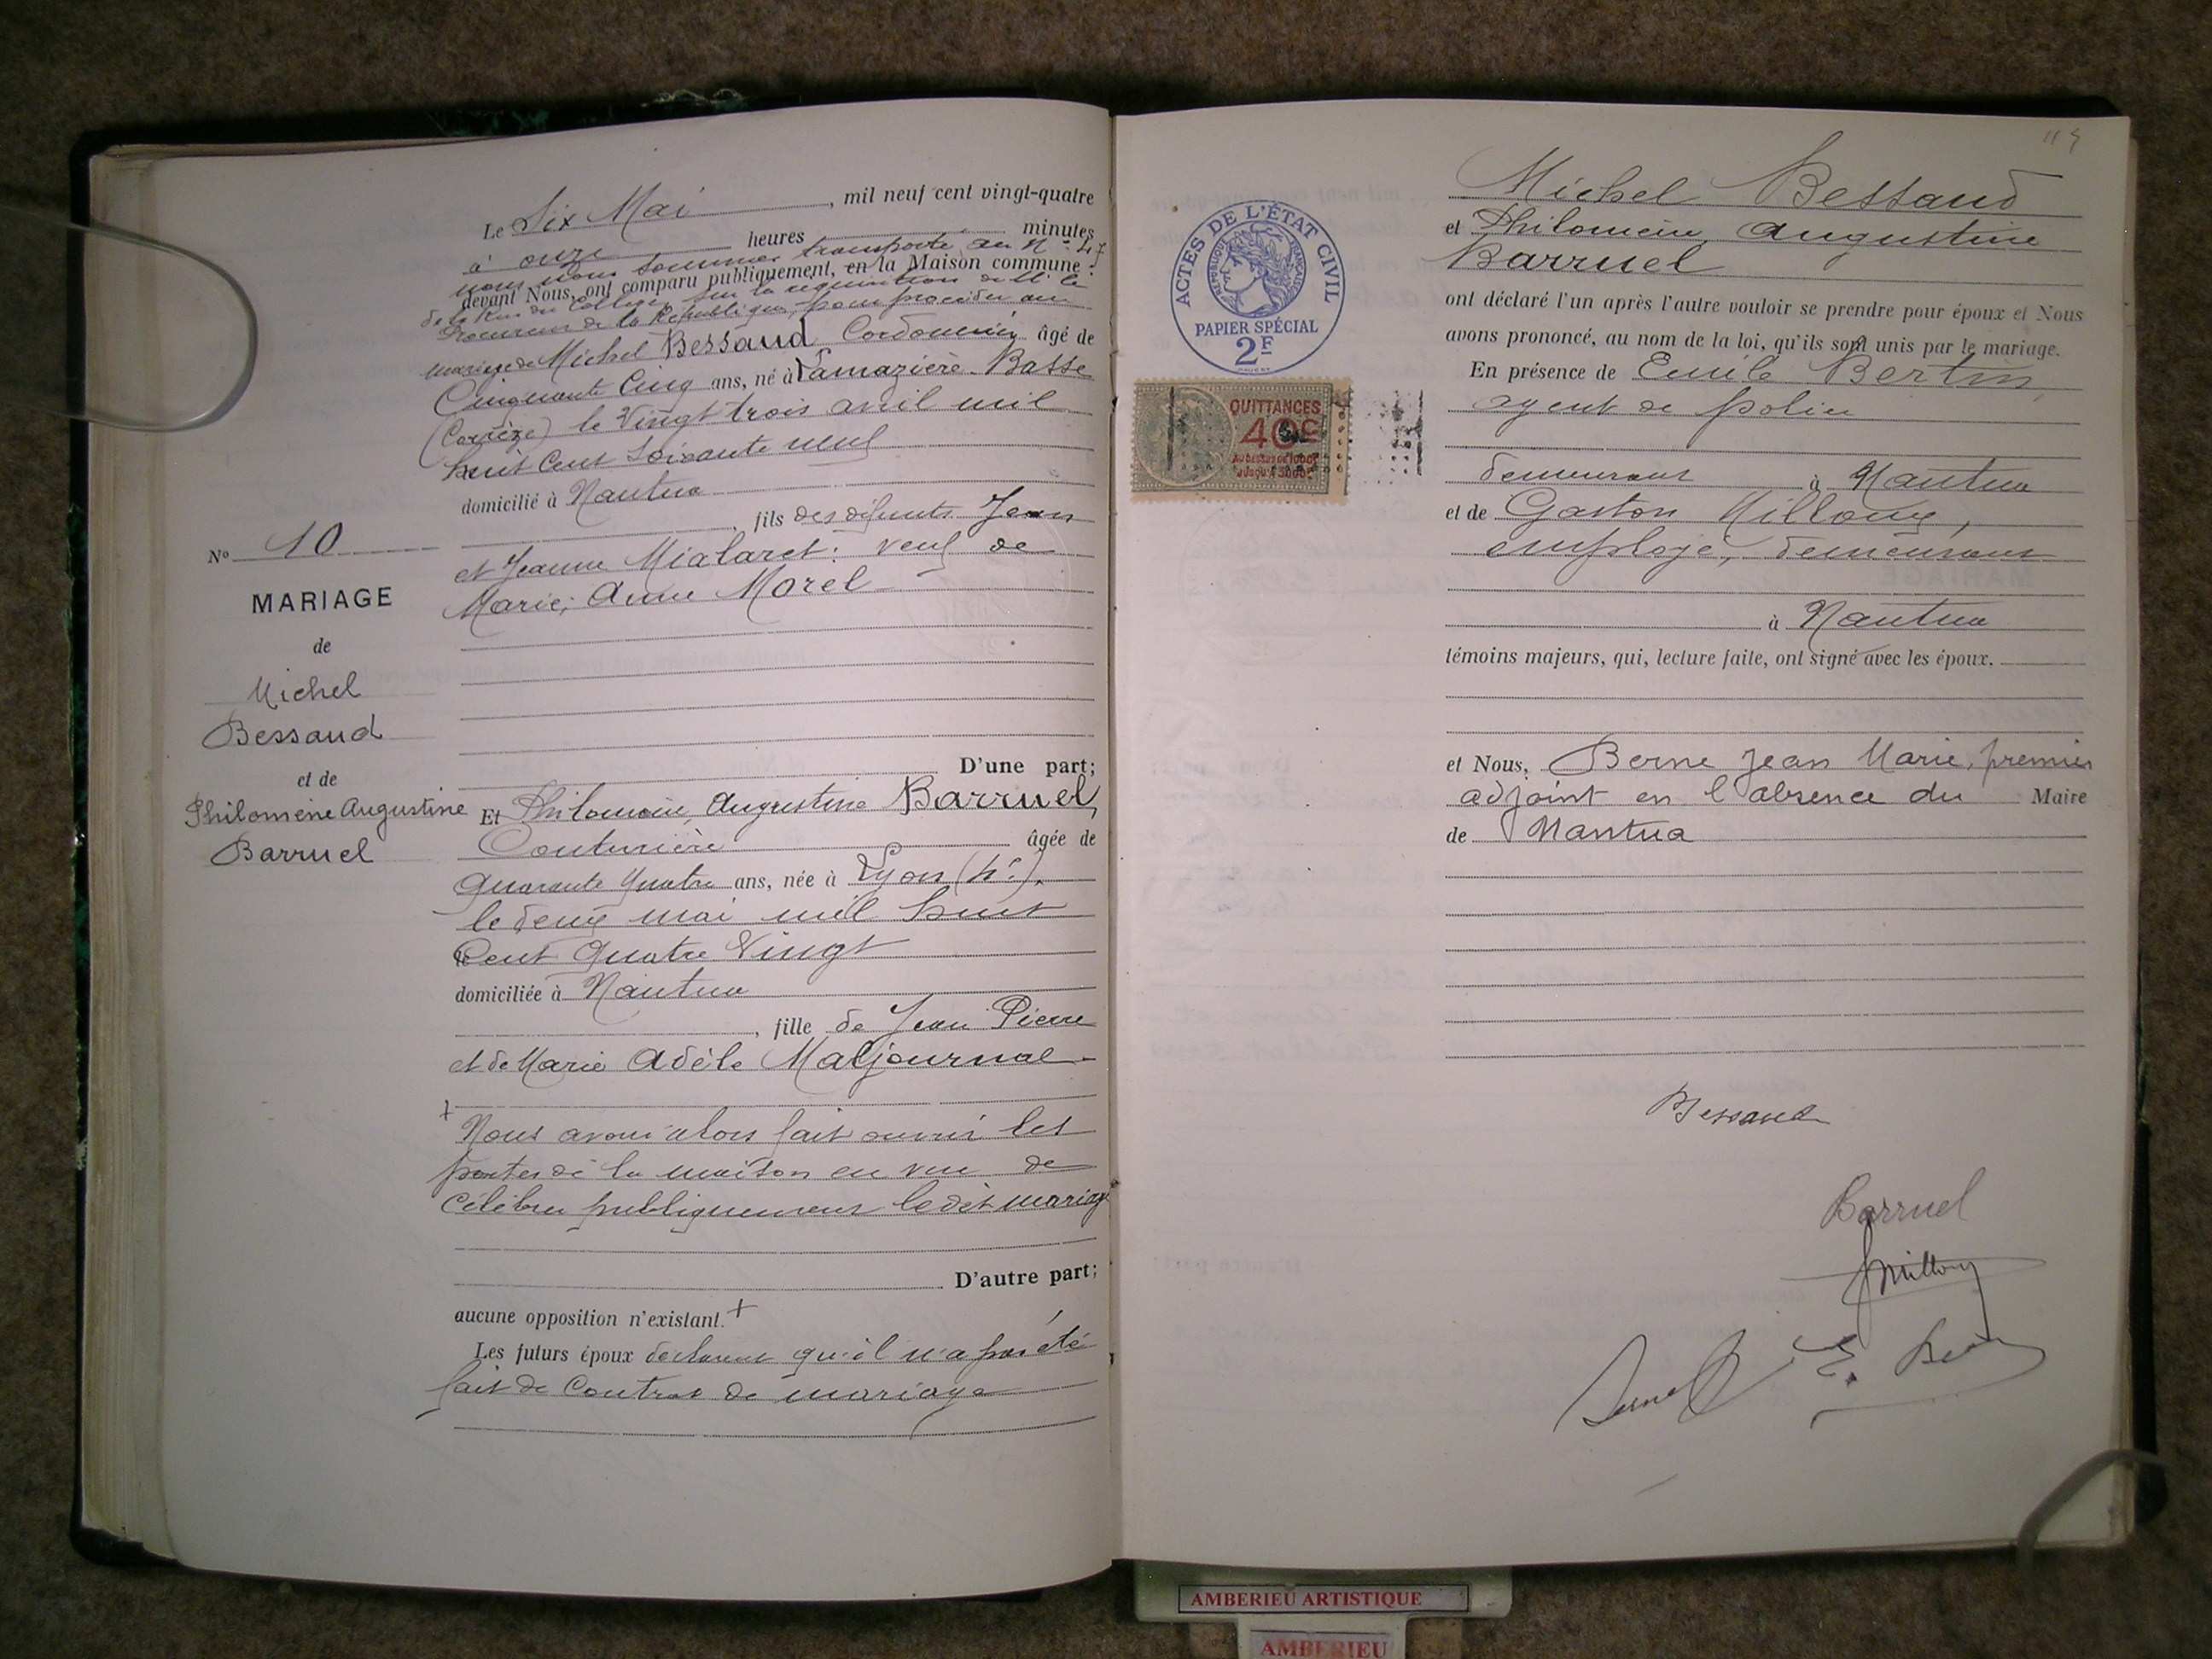 Le Six Mai, mil neuf cent vingt-quatre
à onze heures minutes
nous nous sommes transporté au N° 47
devant Nous, ont comparu publiquement, en la Maison commune :
de la Rue du Collège, sur la réquisition de M. le
Procureur de la République, pour procéder au
mariage de Michel Bessaud Cordonnier âgé de
Cinquante Cinq ans, né à Lamazière-Basse
(Corrèze) le Vingt trois avril mil
huit Cent Soixante neuf
domicilié à Nantua
, fils des défunts Jean
et Jeanne Mialaret : veuf de
Marie, Anne Morel
D'une part;
Et Philomène, Augustine Barruel,
Couturière âgée de
Quarante Quatre ans, née à Lyon (4e),
le deux mai mil huit
Cent Quatre Vingt
domiciliée à Nantua
, fille de Jean Pierre
et de Marie Adèle Maljournal
+ Nous avons alors fait ouvrir les
portes de la maison en vue de
Célébrer publiquement ledit mariage
D'autre part;
aucune opposition n'existant. +
Les futurs époux déclarent qu'il n'a pas été
fait de Contrat de mariage
N° 10
MARIAGE
de
Michel
Bessaud
et de
Philomène Augustine
Barruel
ACTES DE L'ÉTAT CIVIL
RÉPUBLIQUE FRANÇAISE
PAPIER SPÉCIAL
2F
QUITTANCES
40c
Michel Bessaud
et Philomène, Augustine
Barruel
ont déclaré l'un après l'autre vouloir se prendre pour époux et Nous
avons prononcé, au nom de la loi, qu'ils sont unis par le mariage.
En présence de Emile Bertin,
agent de police
demeurant à Nantua
et de Gaston Milloux,
employé, demeurant
à Nantua
témoins majeurs, qui, lecture faite, ont signé avec les époux.
et Nous, Berne Jean Marie, premier
adjoint en l'absence du Maire
de Nantua
Bessaud
Barruel
AMBERIEU ARTISTIQUE
AMBERIEU